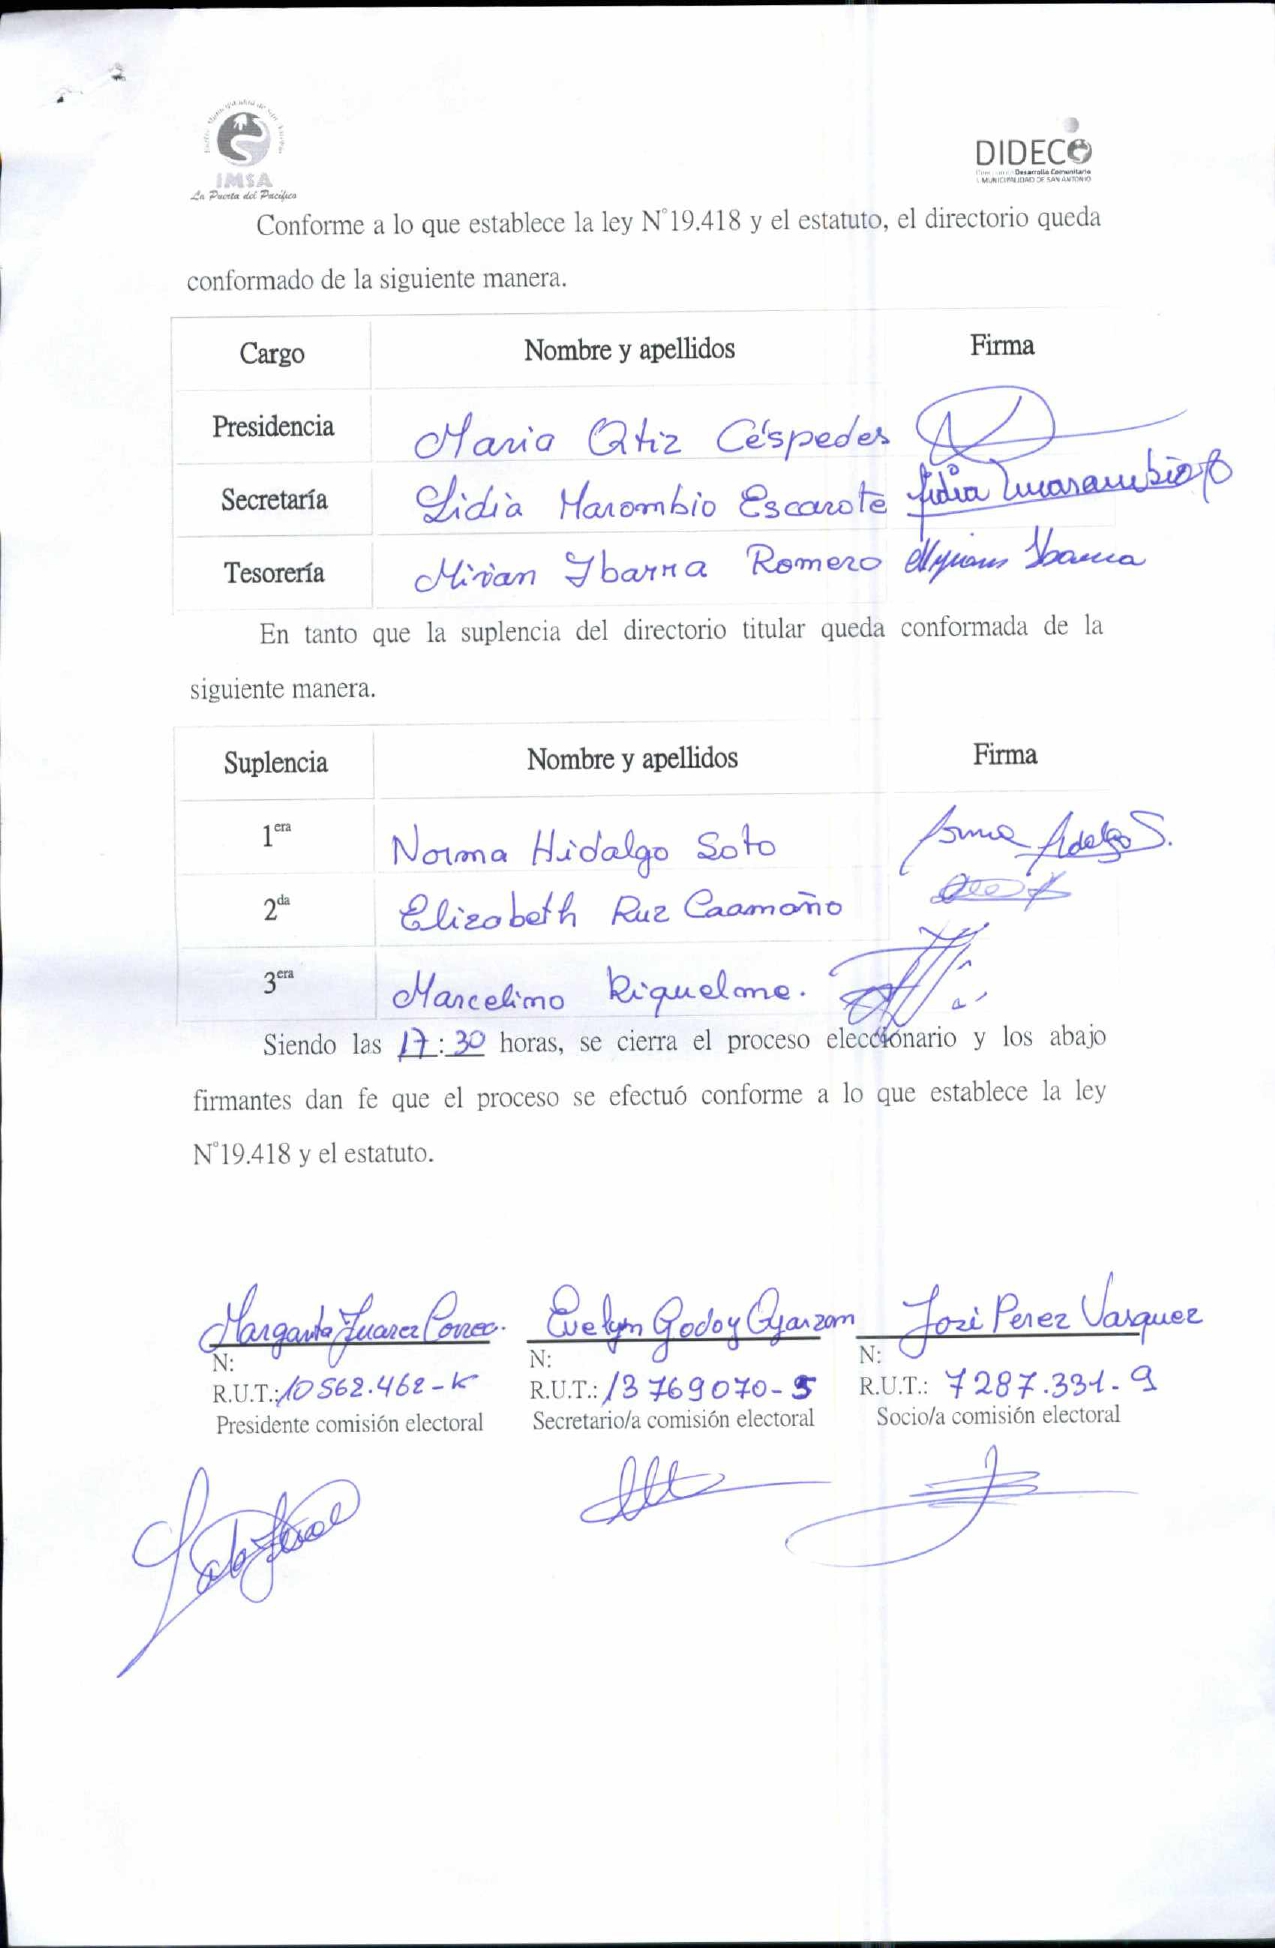 Ilustre Municipalidad de San Antonio
IMSA
La Puerta del Pacífico
DIDECO
Desarrollo Comunitario
I. MUNICIPALIDAD DE SAN ANTONIO
Conforme a lo que establece la ley N°19.418 y el estatuto, el directorio queda
conformado de la siguiente manera.
Cargo Nombre y apellidos Firma
Presidencia Maria Ortiz Céspedes
Secretaría Lidia Marambio Escarate Lidia Marambio
Tesorería Mirian Ybarra Romero Myriam Ibarra
En tanto que la suplencia del directorio titular queda conformada de la
siguiente manera.
Suplencia Nombre y apellidos Firma
1era Norma Hidalgo Soto Norma Hidalgo S.
2da Elizabeth Ruz Caamaño
3era Marcelimo Riquelme.
Siendo las 17:30 horas, se cierra el proceso eleccionario y los abajo
firmantes dan fe que el proceso se efectuó conforme a lo que establece la ley
N°19.418 y el estatuto.
Margarita Juarez Correa. Evelyn Godoy Oyarzom José Perez Vasquez
N: N: N:
R.U.T.: 10562.462-K R.U.T.: 13769070-5 R.U.T.: 7287.331-9
Presidente comisión electoral Secretario/a comisión electoral Socio/a comisión electoral